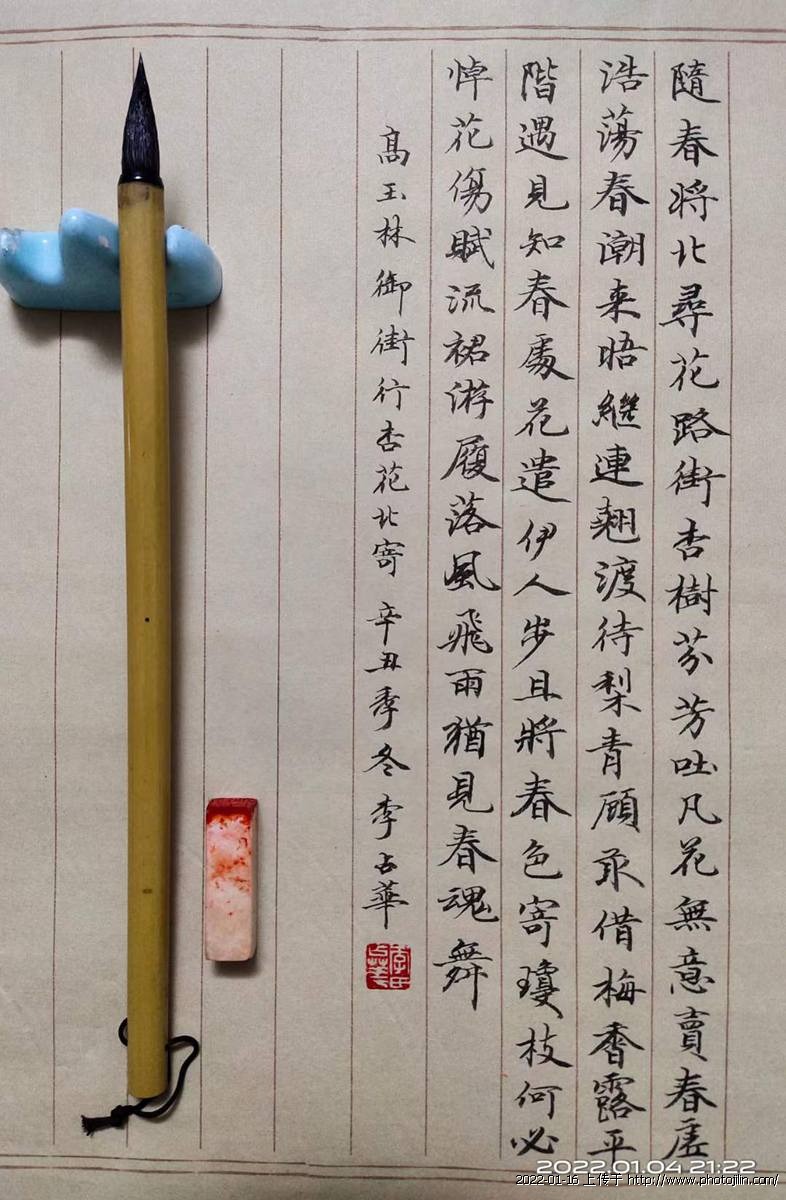 隨春將北尋花路街杏樹芬芳吐凡花無意賣春
浩蕩春潮来晤繼連翹渡待梨青顧敢借梅香露平
階遇見知春處花遣伊人步且將春色寄瓊枝何必
悼花傷賦流裙游履落風飛雨猶見春魂舞
高玉林御街行杏花北寄 辛丑季冬 李占華
2022.01.04 21:22
2022-01-16 上传于 http://www.photojln.com/